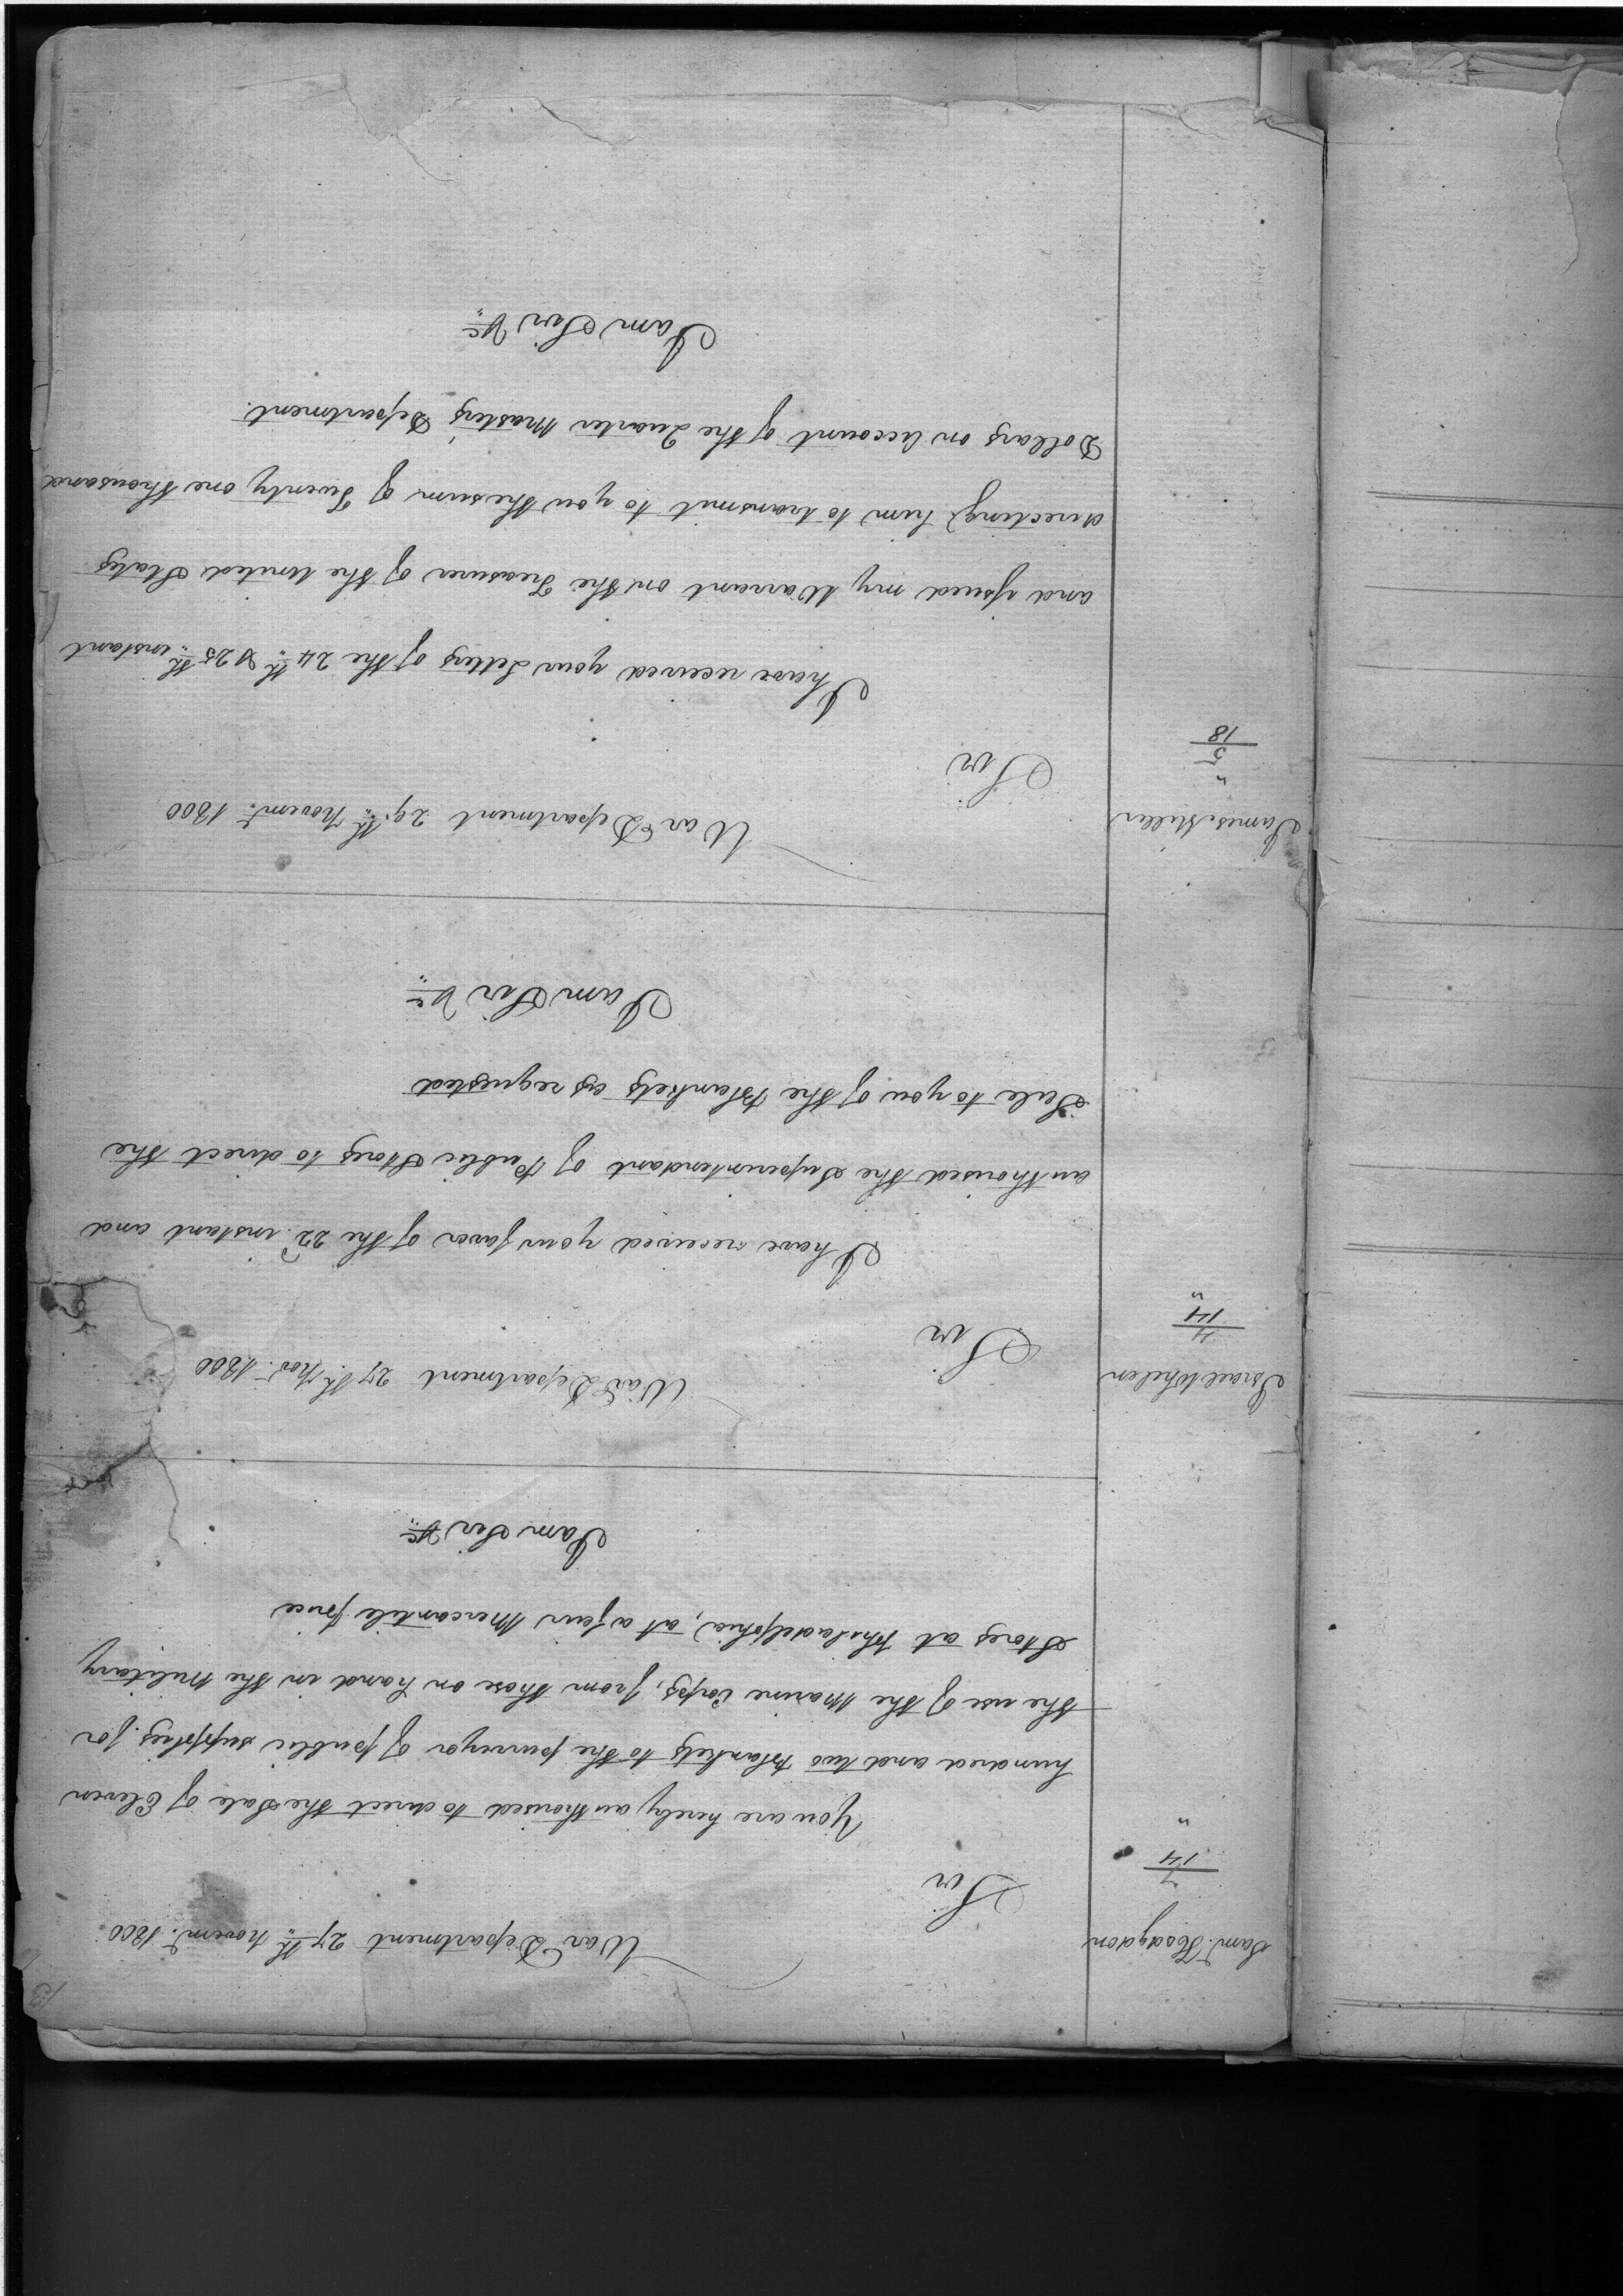 13
War Department 27th Novemr. 1800
Saml. Hodgdon
7
14
"
Sir
You are hereby authorised to direct the Sale of Eleven
hundred and two Blankets to the purveyor of public supplies for
the use of the Marine Corps, from those on hand in the Military
Stores at Philadelphia, at a fair Mercantile price
I am Sir &c
War Department 27th. Nov. 1800
Israel Whelen
4
14
"
Sir
I have received your favor of the 22d. instant and
authorised the Superintendant of Public Stores to direct the
Sale to you of the Blankets as requested
I am Sir &c
War Department 29th Novemr. 1800
James Miller
"
5
18
Sir
I have received your Letters of the 24th & 25th instant
and issued my Warrant on the Treasurer of the United States
directing him to transmit to you the sum of Twenty one thousand
Dollars on Account of the Quarter Masters Department.
I am Sir &c